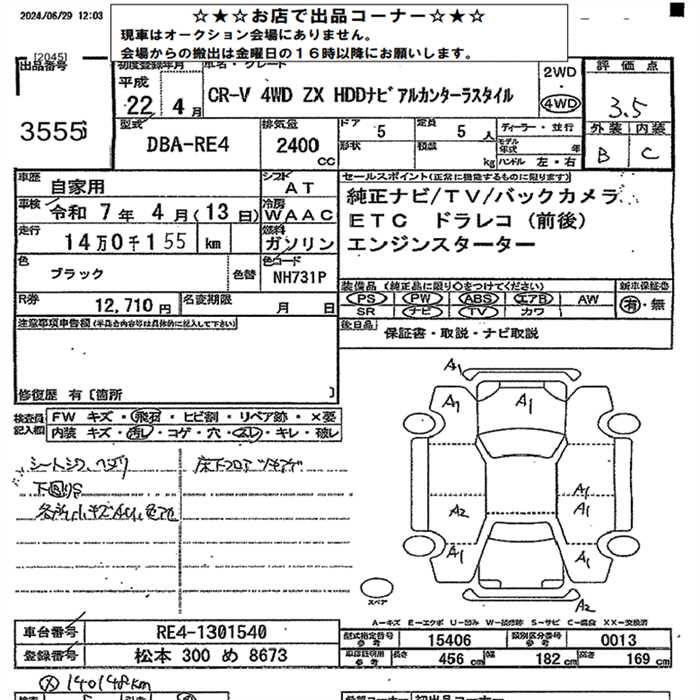 2024/06/29 12:03
☆★☆お店で出品コーナー☆★☆
現車はオークション会場にありません。
会場からの搬出は金曜日の16時以降にお願いします。
[2045]
出品番号
3555
初度登録年月
平成
22年 4月
車名・グレード
CR-V 4WD ZX HDDナビアルカンターラスタイル
2WD
・
4WD
評価点
3.5
外装 内装
B C
型式
DBA-RE4
排気量
2400
cc
ドア 5
形状
定員 5 人
積載 kg
ディーラー・並行
モデル年式 年
ハンドル 左・右
車歴
自家用
シフト
AT
車検
令和 7年 4月(13日)
冷房
WAAC
走行
14万0千155 km
燃料
ガソリン
色
ブラック
色替
色コード
NH731P
R券
12,710円
名変期限
月 日
セールスポイント(正常に機能するものに限ります)
純正ナビ/TV/バックカメラ
ETC ドラレコ(前後)
エンジンスターター
装備品(純正品に限り○をつけてください)
PS PW ABS エアB AW
SR ナビ TV カワ
新車保証書
有・無
後日品
保証書・取説・ナビ取説
注意事項申告欄(不具合内容等は具体的に記入して下さい)
修復歴 有〔箇所 〕
検査員記入欄
FW キズ・飛石・ヒビ割・リペア跡・×要
内装 キズ・汚レ・コゲ・穴・スレ・キレ・破レ
シートシワ、ヘタリ
下回りS
A1
A1
A1
A1
A1
A2
A1
A1
A2
スペア
A−キズ E−エクボ U−凹み W−補修跡 S−サビ C−腐食 XX−交換済
車台番号
RE4-1301540
登録番号
松本 300 め 8673
型式指定番号
15406
類別区分番号
0013
長さ 456 cm
幅 182 cm
高さ 169 cm
140148km